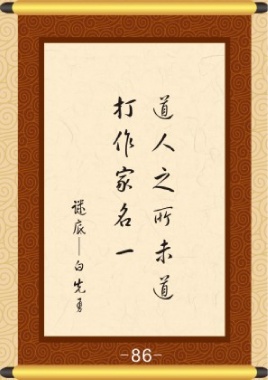 道人之所未道
打作家名一
谜底——白先勇
-86-